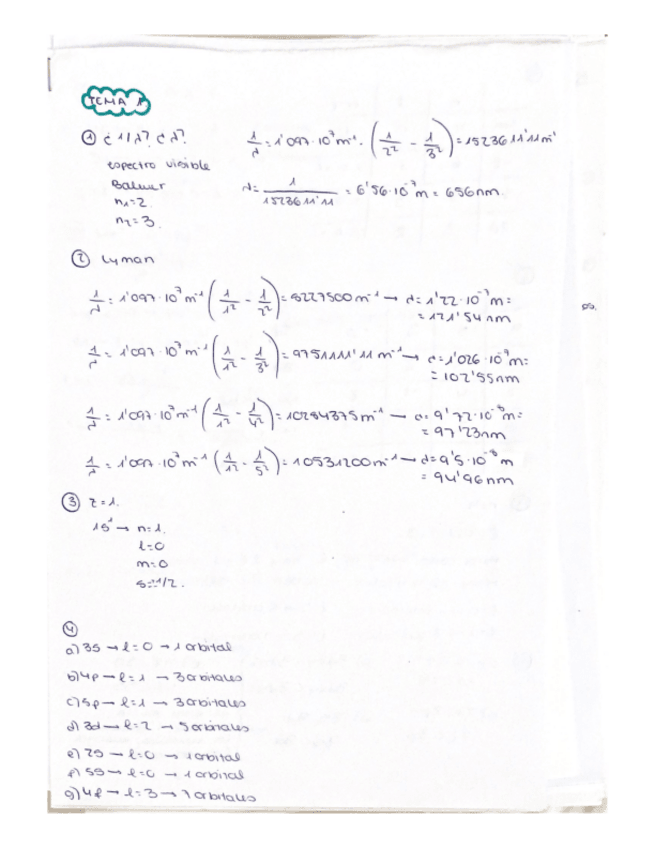 TEMA 1
① ¿1/λ? ¿λ?
1/λ = 1'097·10⁷ m⁻¹ · (1/2² - 1/3²) = 1523611'11 m⁻¹
espectro visible
Balmer
n₁=2.
n₂=3.
λ = 1/1523611'11 = 6'56·10⁻⁷ m = 656 nm.
② Lyman
1/λ = 1'097·10⁷ m⁻¹ (1/1² - 1/2²) = 8227500 m⁻¹ → λ = 1'22·10⁻⁷ m =
= 121'54 nm
∞.
1/λ = 1'097·10⁷ m⁻¹ (1/1² - 1/3²) = 9751111'11 m⁻¹ → λ = 1'026·10⁻⁷ m =
= 102'55 nm
1/λ = 1'097·10⁷ m⁻¹ (1/1² - 1/4²) = 10284375 m⁻¹ → λ = 9'72·10⁻⁸ m =
= 97'23 nm
1/λ = 1'097·10⁷ m⁻¹ (1/1² - 1/5²) = 10531200 m⁻¹ → λ = 9'5·10⁻⁸ m
= 94'96 nm
③ z=1.
1s¹ → n=1.
l=0
m=0
s=±1/2.
④
a) 3s → l=0 → 1 orbital
b) 4p → l=1 → 3 orbitales
c) 5p → l=1 → 3 orbitales
d) 3d → l=2 → 5 orbitales
e) 2s → l=0 → 1 orbital
f) 5s → l=0 → 1 orbital
g) 4f → l=3 → 7 orbitales